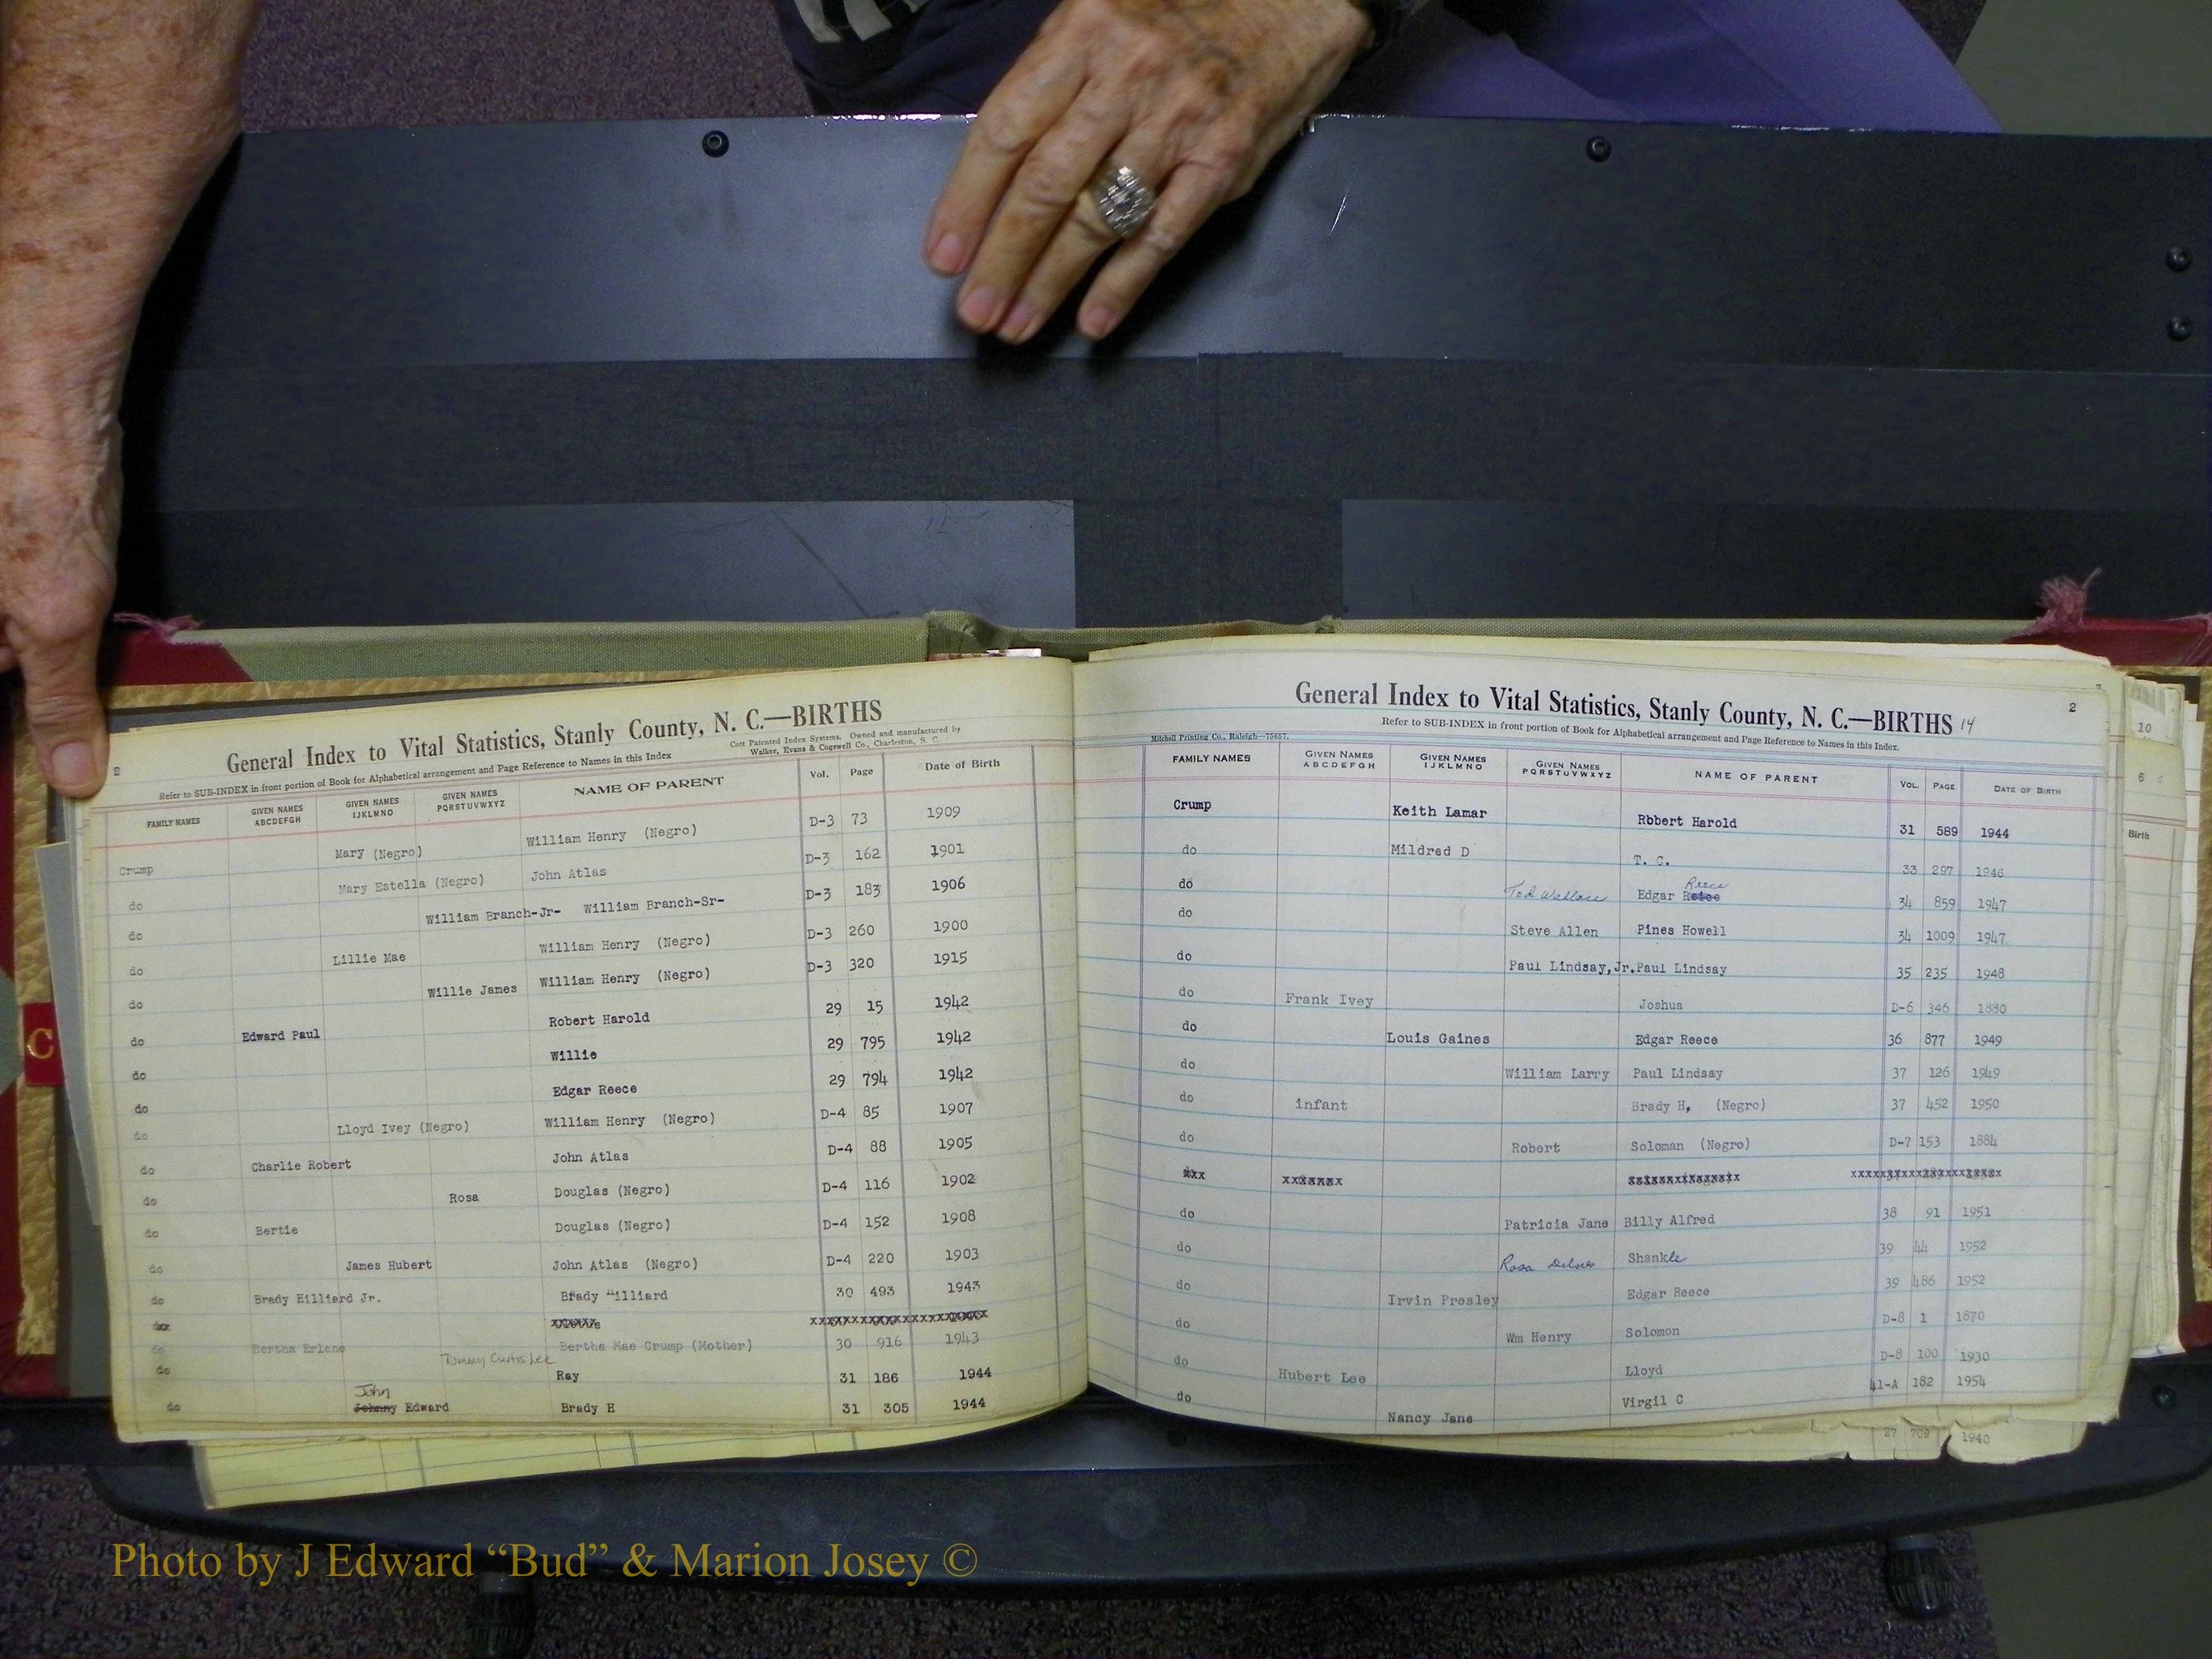 General Index to Vital Statistics, Stanly County, N. C.—BIRTHS
2
Refer to SUB-INDEX in front portion of Book for Alphabetical arrangement and Page Reference to Names in this Index
Cott Patented Index Systems. Owned and manufactured by
Walker, Evans & Cogswell Co., Charleston, S. C.
FAMILY NAMES GIVEN NAMES ABCDEFGH GIVEN NAMES IJKLMNO GIVEN NAMES PQRSTUVWXYZ NAME OF PARENT Vol. Page Date of Birth
Crump Mary (Negro) William Henry (Negro) D-3 73 1909
do Mary Estella (Negro) John Atlas D-3 162 1901
do William Branch-Jr- William Branch-Sr- D-3 183 1906
do Lillie Mae William Henry (Negro) D-3 260 1900
do Willie James William Henry (Negro) D-3 320 1915
do Edward Paul Robert Harold 29 15 1942
do Willie 29 795 1942
do Edgar Reece 29 794 1942
do Lloyd Ivey (Negro) William Henry (Negro) D-4 85 1907
do Charlie Robert John Atlas D-4 88 1905
do Rosa Douglas (Negro) D-4 116 1902
do Bertie Douglas (Negro) D-4 152 1908
do James Hubert John Atlas (Negro) D-4 220 1903
do Brady Hilliard Jr. Brady "illiard 30 493 1943
do Bertha Erlene Bertha Mae Crump (Mother) 30 916 1943
do Tommy Curtis Lee Ray 31 186 1944
John
do Johnny Edward Brady H 31 305 1944
General Index to Vital Statistics, Stanly County, N. C.—BIRTHS 14
2
Refer to SUB-INDEX in front portion of Book for Alphabetical arrangement and Page Reference to Names in this Index.
Mitchell Printing Co., Raleigh—75657.
FAMILY NAMES GIVEN NAMES ABCDEFGH GIVEN NAMES IJKLMNO GIVEN NAMES PQRSTUVWXYZ NAME OF PARENT VOL. PAGE DATE OF BIRTH
Crump Keith Lamar Robert Harold 31 589 1944
do Mildred D T. C. 33 297 1946
Reece
do Ted Wallace Edgar 34 859 1947
do Steve Allen Pines Howell 34 1009 1947
do Paul Lindsay,Jr. Paul Lindsay 35 235 1948
do Frank Ivey Joshua D-6 346 1880
do Louis Gaines Edgar Reece 36 877 1949
do William Larry Paul Lindsay 37 126 1949
do infant Brady H, (Negro) 37 452 1950
do Robert Soloman (Negro) D-7 153 1884
do Patricia Jane Billy Alfred 38 91 1951
do Rosa Delores Shankle 39 44 1952
do Irvin Presley Edgar Reece 39 486 1952
do Wm Henry Solomon D-8 1 1870
do Hubert Lee Lloyd D-8 100 1930
do Nancy Jane Virgil C 41-A 182 1954
27 709 1940
10
6
Birth
C
Photo by J Edward “Bud” & Marion Josey ©